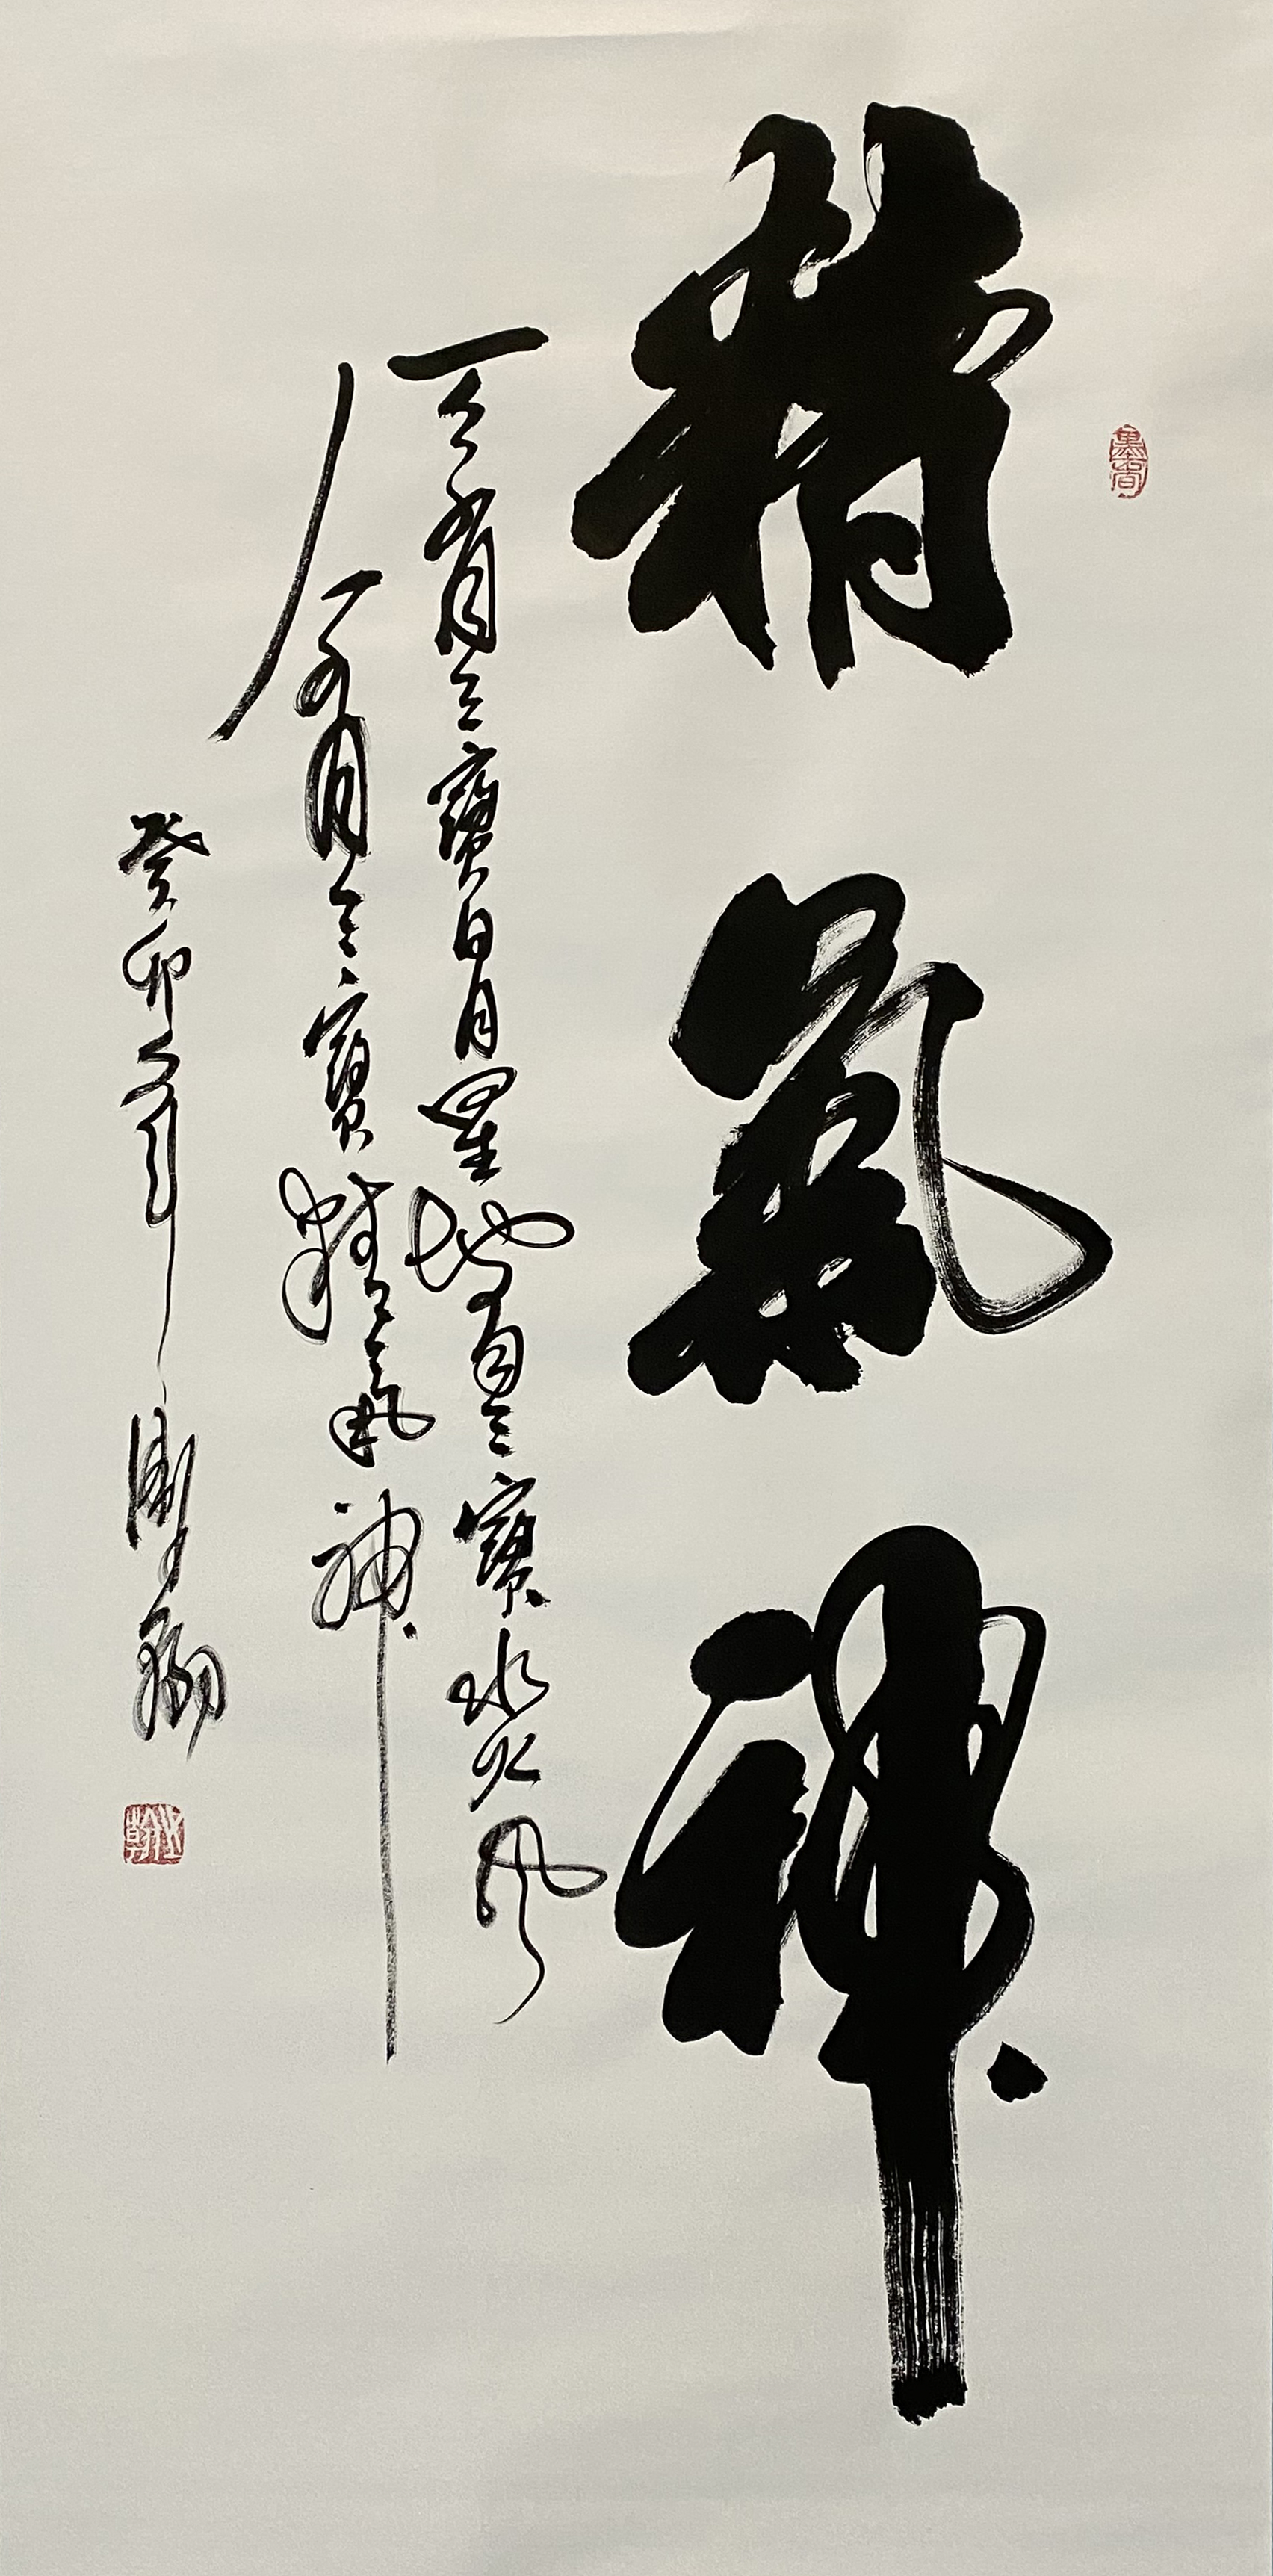 精氣神
天有三寶日月星地有三寶水火風
人有三寶精氣神
癸卯年